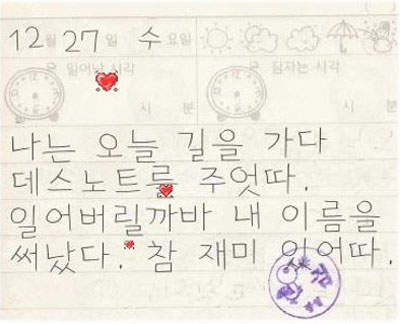 12월 27일 수요일
일어난 시각 잠자는 시각
시 분 시 분
나는 오늘 길을 가다
데스노트를 주엇따.
일어버릴까바 내 이름을
써났다. 참 재미 있어따.